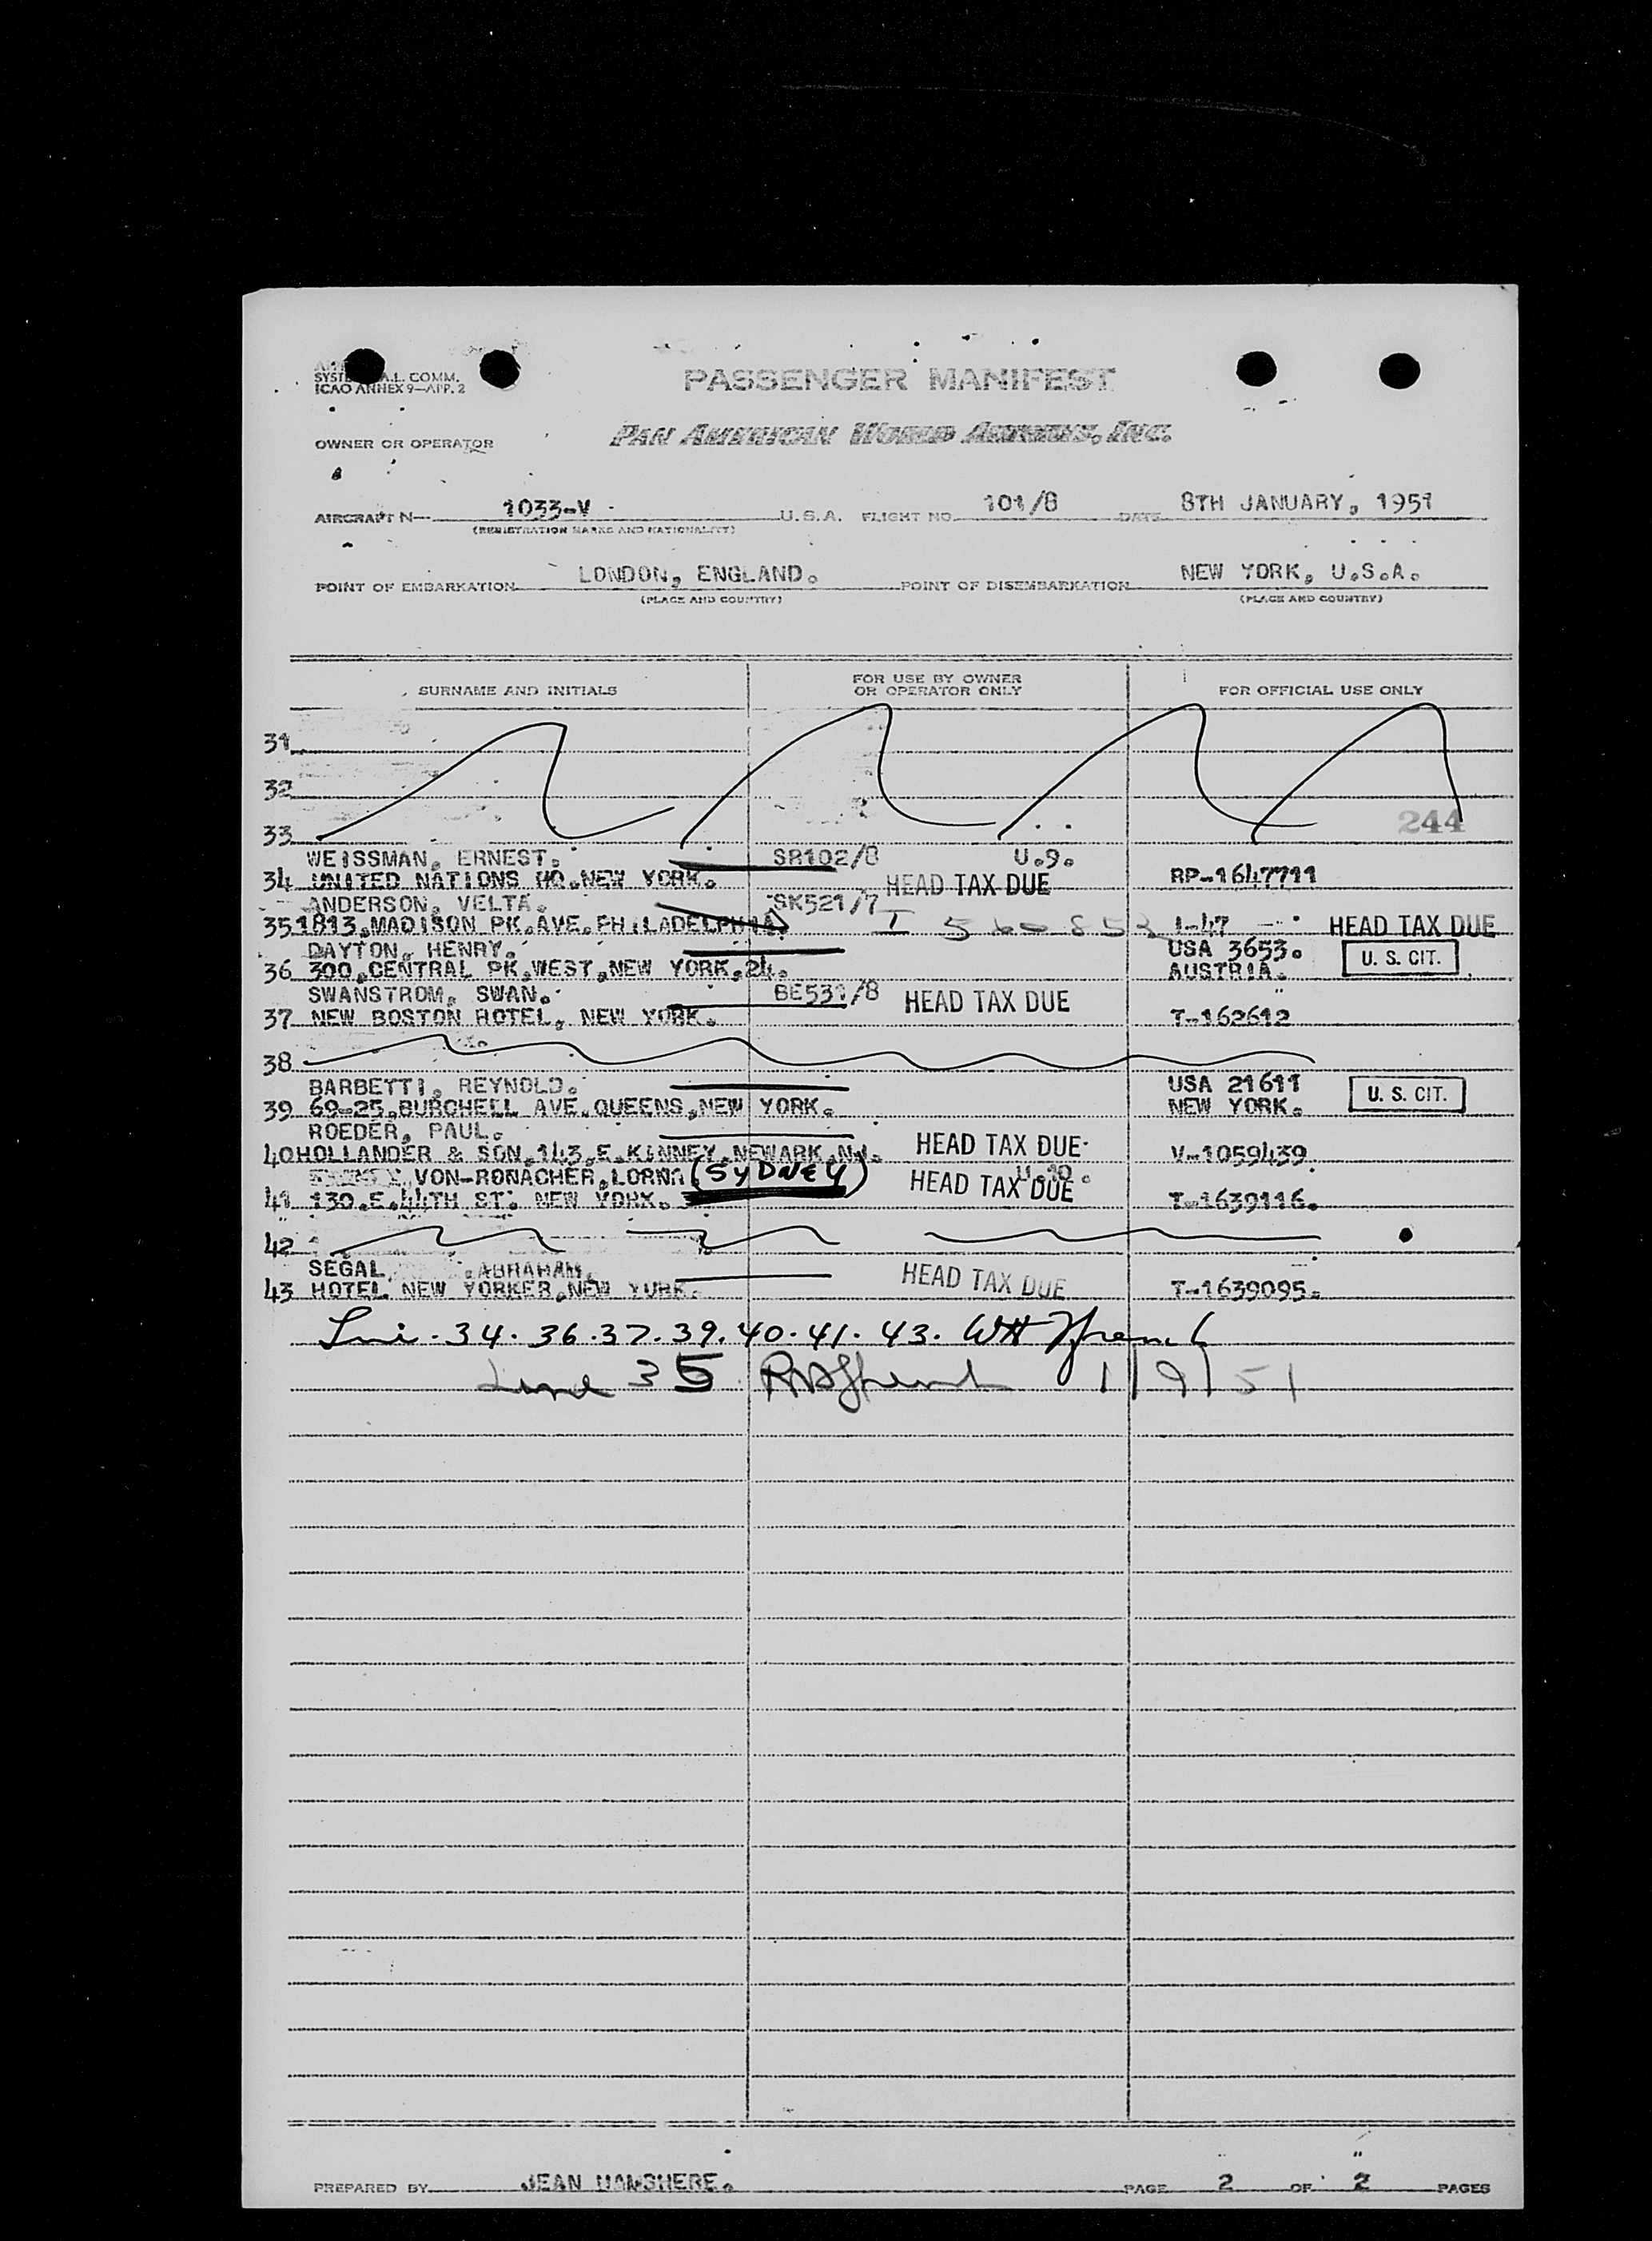 SYST A.L. COMM.
ICAO ANNEX 9—APP. 2
PASSENGER MANIFEST
OWNER OR OPERATOR
PAN AMERICAN WORLD AIRWAYS, INC.
AIRCRAFT N— 1033-V U.S.A. FLIGHT NO. 101/8 DATE 8TH JANUARY, 1951
(REGISTRATION MARKS AND NATIONALITY)
POINT OF EMBARKATION LONDON, ENGLAND. POINT OF DISEMBARKATION NEW YORK, U.S.A.
(PLACE AND COUNTRY) (PLACE AND COUNTRY)
SURNAME AND INITIALS
FOR USE BY OWNER
OR OPERATOR ONLY
FOR OFFICIAL USE ONLY
31
32
33 244
WEISSMAN, ERNEST. SR102/8 U.9.
34 UNITED NATIONS HQ.NEW YORK. HEAD TAX DUE RP-1647711
ANDERSON, VELTA. SK521/7
35 1813,MADISON PK.AVE.PHILADELPHIA. I-47 HEAD TAX DUE
DAYTON, HENRY. USA 3653. U. S. CIT.
36 300,CENTRAL PK.WEST,NEW YORK.24. AUSTRIA.
SWANSTROM, SWAN. BE531/8 HEAD TAX DUE
37 NEW BOSTON HOTEL, NEW YORK. T-162612
38
BARBETTI, REYNOLD. USA 21611 U. S. CIT.
39 69-25,BURCHELL AVE.QUEENS,NEW YORK. NEW YORK.
ROEDER, PAUL.
40 HOLLANDER & SON,143,E.KINNEY,NEWARK.NJ. HEAD TAX DUE V-1059439
VON-RONACHER,LORNA (SYDNEY) HEAD TAX DUE
41 130.E.44TH ST. NEW YORK. T-1639116.
42
SEGAL ABRAHAM. HEAD TAX DUE
43 HOTEL NEW YORKER,NEW YORK. T-1639095.
34. 36. 37. 39. 40. 41. 43.
Line 35 1/9/51
PREPARED BY JEAN PAGE 2 OF 2 PAGES